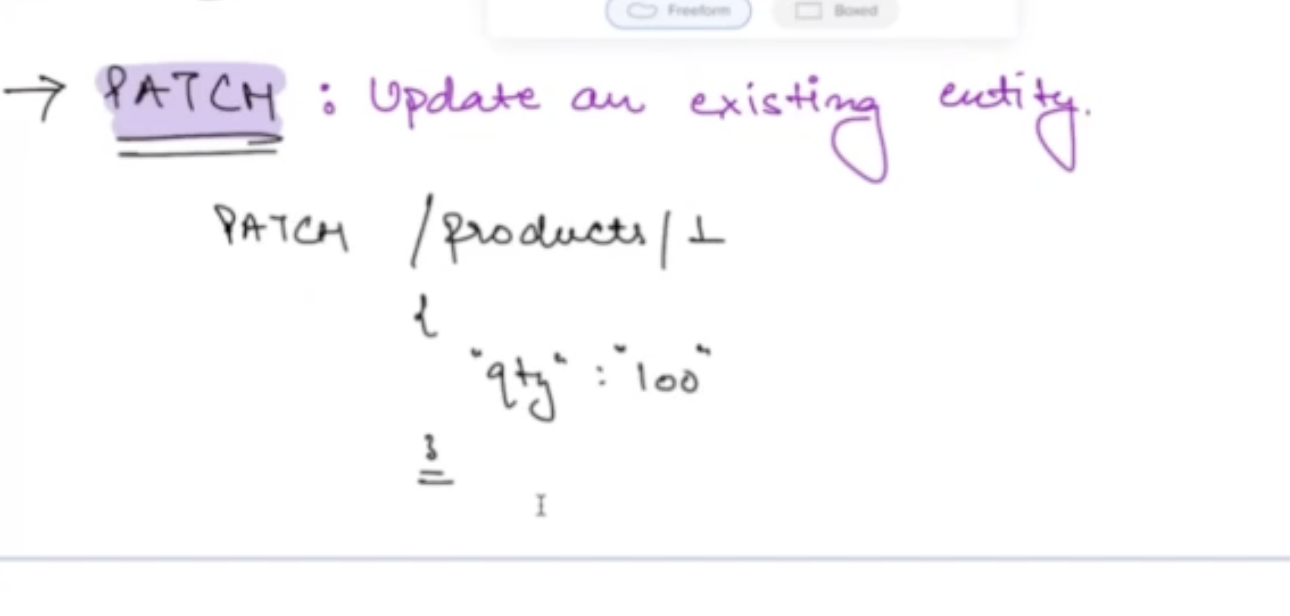 Freeform Boxed
→ PATCH : Update an existing entity.
PATCH /products/1
{
"qty" : "100"
}